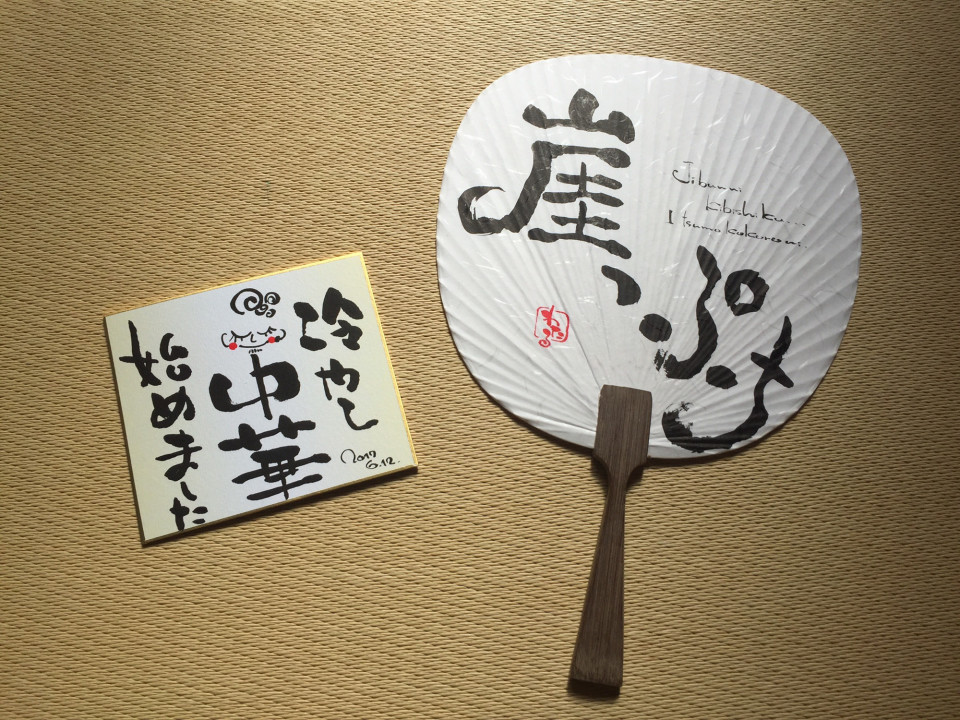 冷やし
中華
始めました
2017
6.12.
崖っぷち
Jibunni
kibishiku...
Itsumo